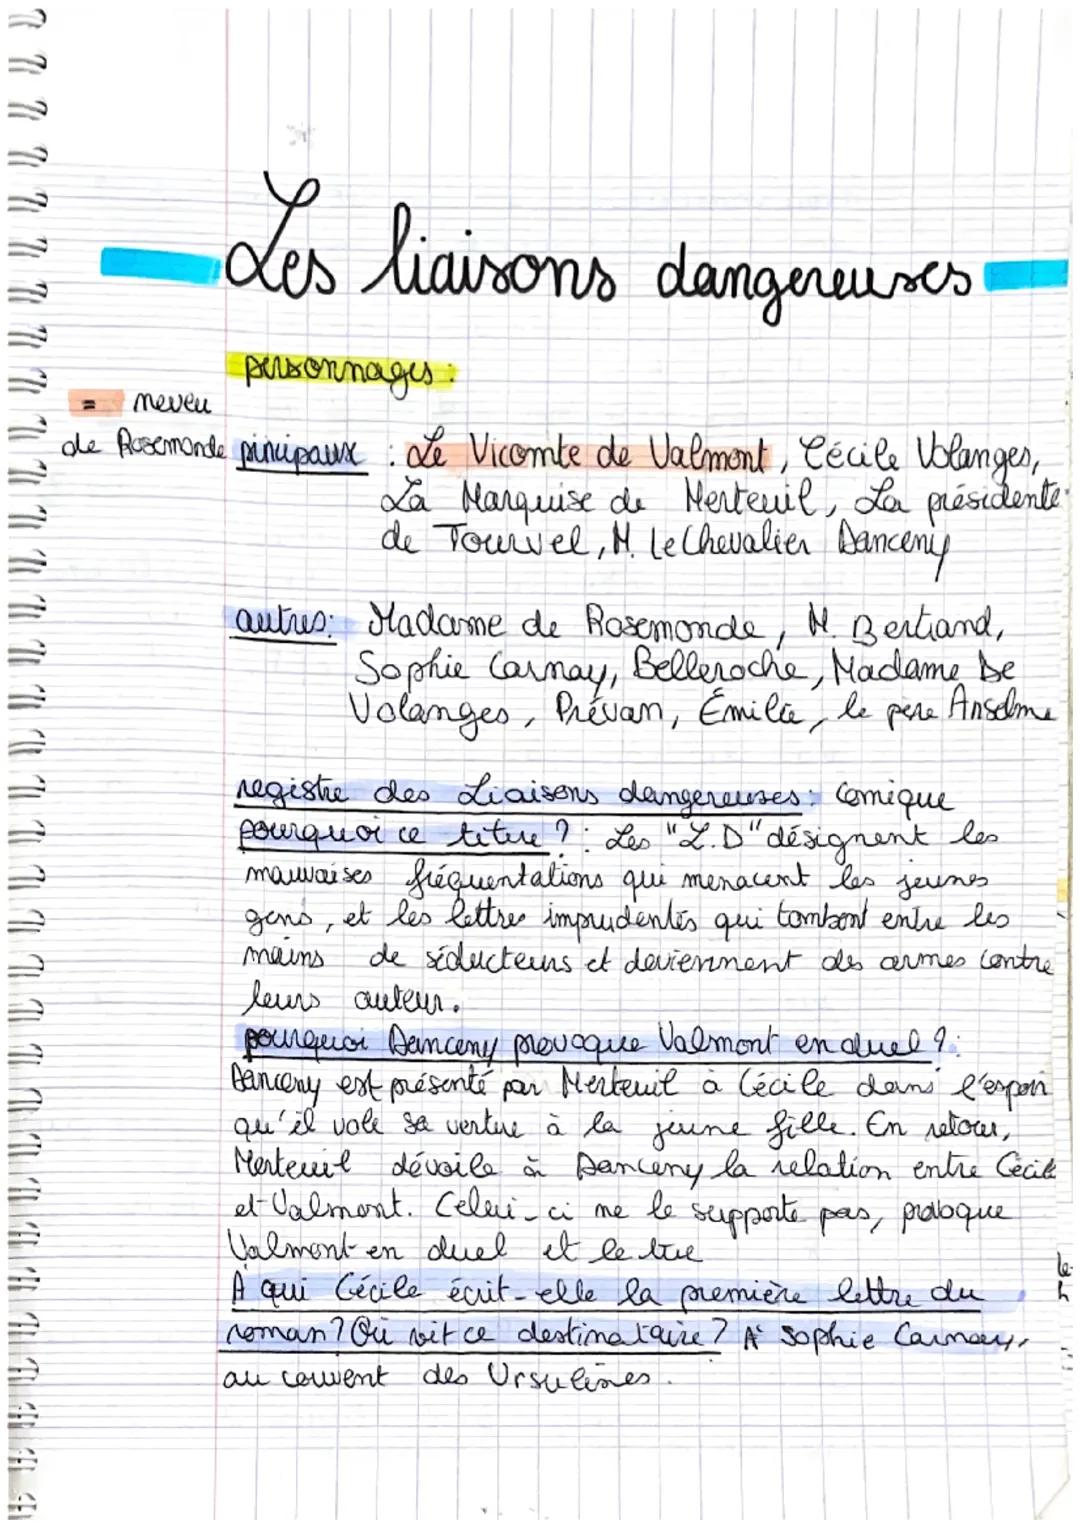 Les liaisons dangereuses
personnages :
= neveu
de Rosemonde
pincipaux : Le Vicomte de Valmont, Cécile Volanges,
La Marquise de Merteuil, La présidente
de Tourvel, M. Le Chevalier Danceny
autres: Madame de Rosemonde, M. Bertrand,
Sophie Carnay, Belleroche, Madame De
Volanges, Prévan, Émilie, le père Anselme
registre des Liaisons dangereuses : comique
pourquoi ce titre ? : Les "L.D" désignent les
mauvaises fréquentations qui menacent les jeunes
gens, et les lettres imprudentes qui tombent entre les
mains de séducteurs et deviennent des armes contre
leurs auteur.
pourquoi Danceny provoque Valmont en duel ? :
Danceny est présenté par Merteuil à Cécile dans l'espoir
qu'il vole sa vertue à la jeune fille. En retour,
Merteuil dévoile à Danceny la relation entre Cécile
et Valmont. Celui-ci ne le supporte pas, provoque
Valmont en duel et le tue
À qui Cécile écrit-elle la première lettre du
roman ? Où vit ce destinataire ? À Sophie Carnay,
au couvent des Ursulines.